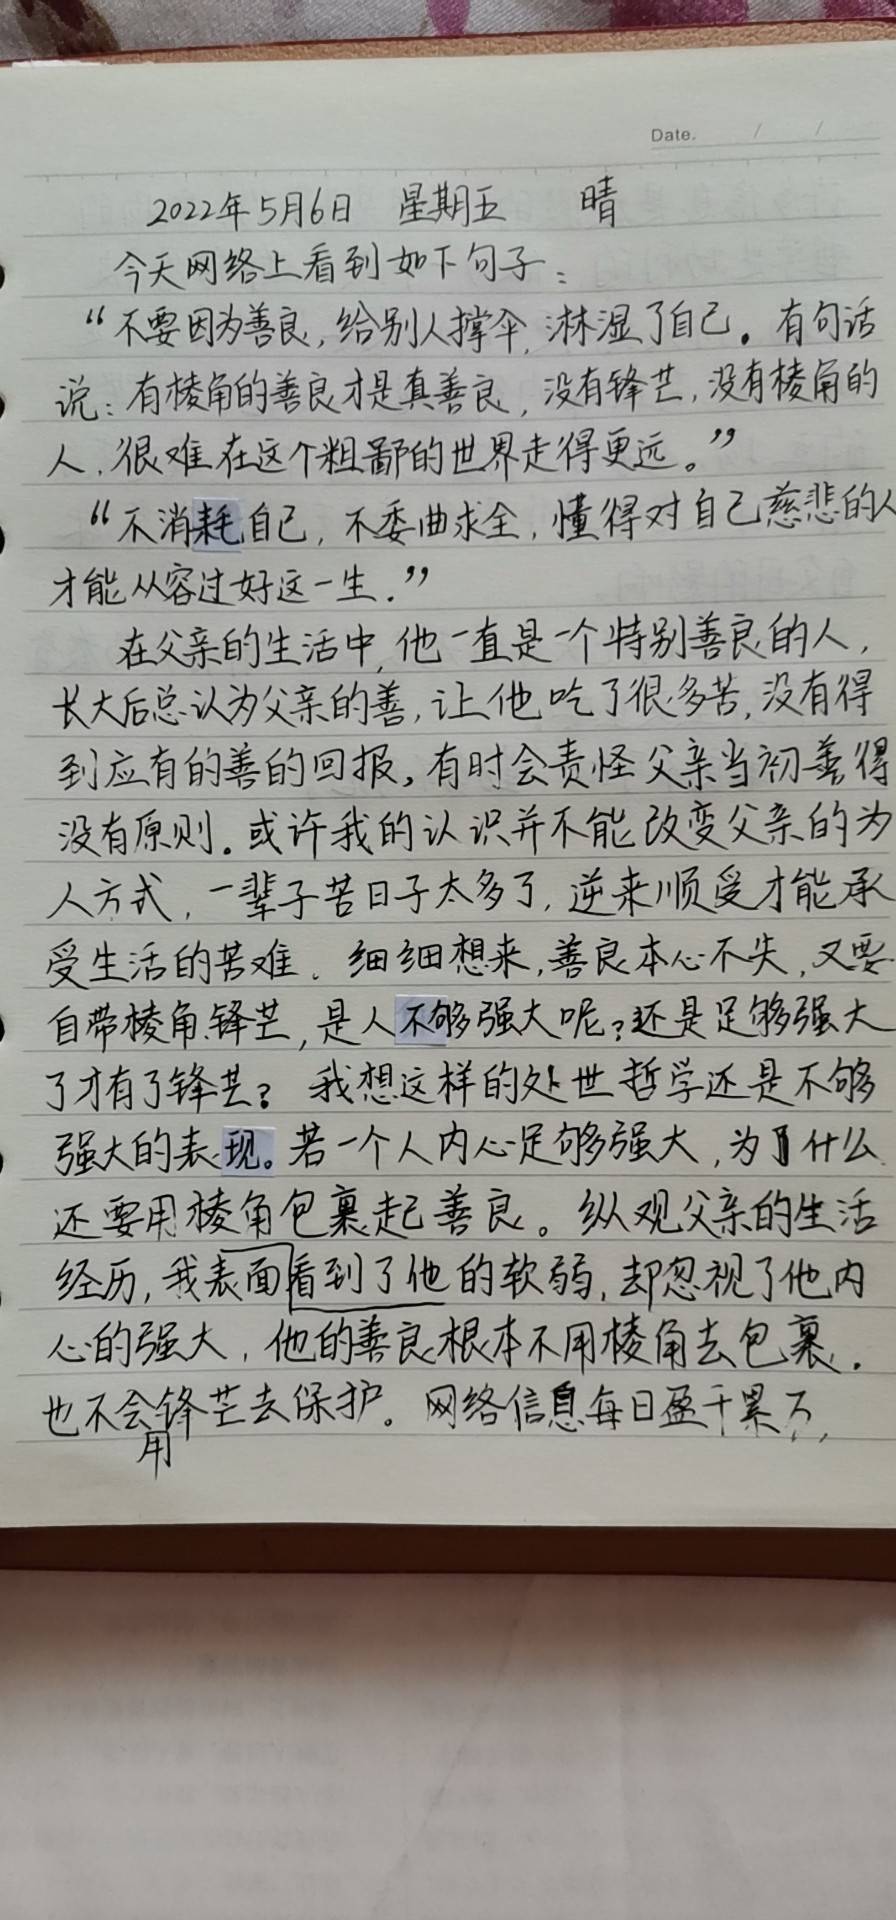 Date. / /
2022年5月6日 星期五 晴
今天网络上看到如下句子：
“不要因为善良，给别人撑伞，淋湿了自己。有句话
说：有棱角的善良才是真善良，没有锋芒，没有棱角的
人，很难在这个粗鄙的世界走得更远。”
“不消耗自己，不委曲求全，懂得对自己慈悲的人
才能从容过好这一生.”
在父亲的生活中，他一直是一个特别善良的人，
长大后总认为父亲的善，让他吃了很多苦，没有得
到应有的善的回报。有时会责怪父亲当初善得
没有原则。或许我的认识并不能改变父亲的为
人方式，一辈子苦日子太多了，逆来顺受才能承
受生活的苦难。细细想来，善良本心不失，又要
自带棱角、锋芒，是人不够强大呢？还是足够强大
了才有了锋芒？我想这样的处世哲学还是不够
强大的表现。若一个人内心足够强大，为什么
还要用棱角包裹起善良。纵观父亲的生活
经历，我表面看到了他的软弱，却忽视了他内
心的强大，他的善良根本不用棱角去包裹。
也不会用锋芒去保护。网络信息每日盈千累万，